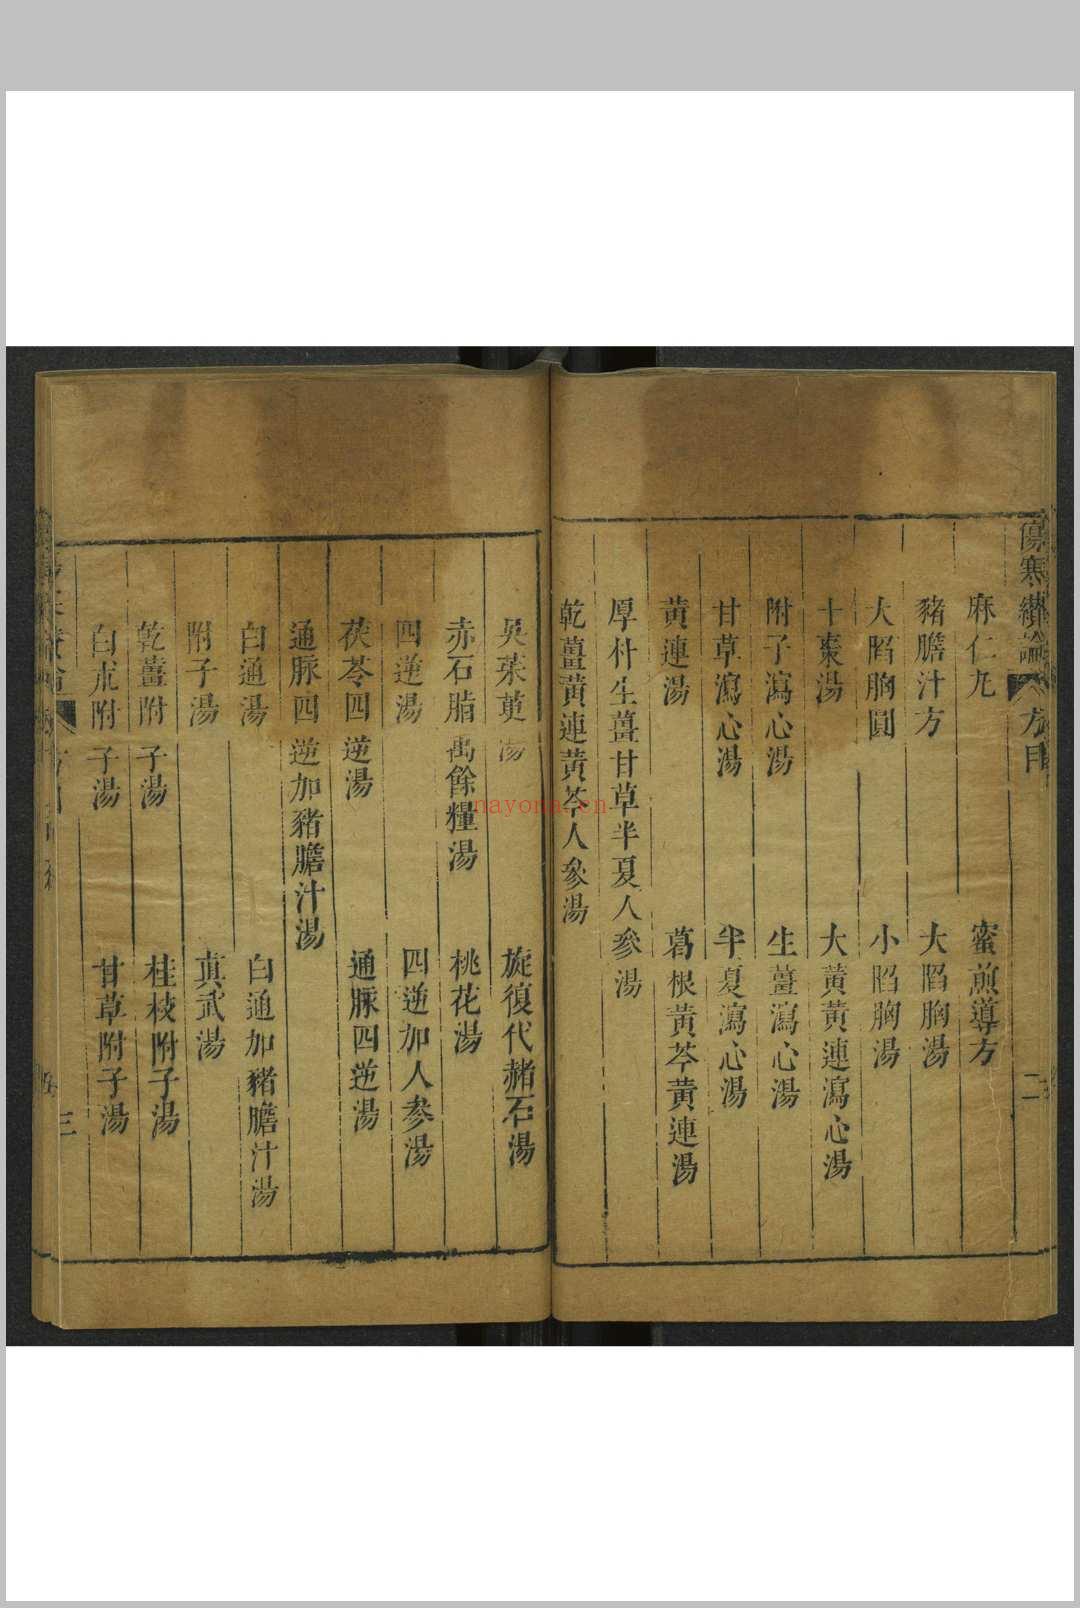 傷寒纘論 方目 二
麻仁丸 蜜煎導方
豬膽汁方 大陷胸湯
大陷胸圓 小陷胸湯
十棗湯 大黃黃連瀉心湯
附子瀉心湯 生薑瀉心湯
甘草瀉心湯 半夏瀉心湯
黃連湯 葛根黃芩黃連湯
厚朴生薑甘草半夏人參湯
乾薑黃連黃芩人參湯
吳茱萸湯 旋復代赭石湯
赤石脂禹餘糧湯 桃花湯
四逆湯 四逆加人參湯
茯苓四逆湯 通脈四逆湯
通脈四逆加豬膽汁湯
白通湯 白通加豬膽汁湯
附子湯 真武湯
乾薑附子湯 桂枝附子湯
白朮附子湯 甘草附子湯
三
nayona.cn